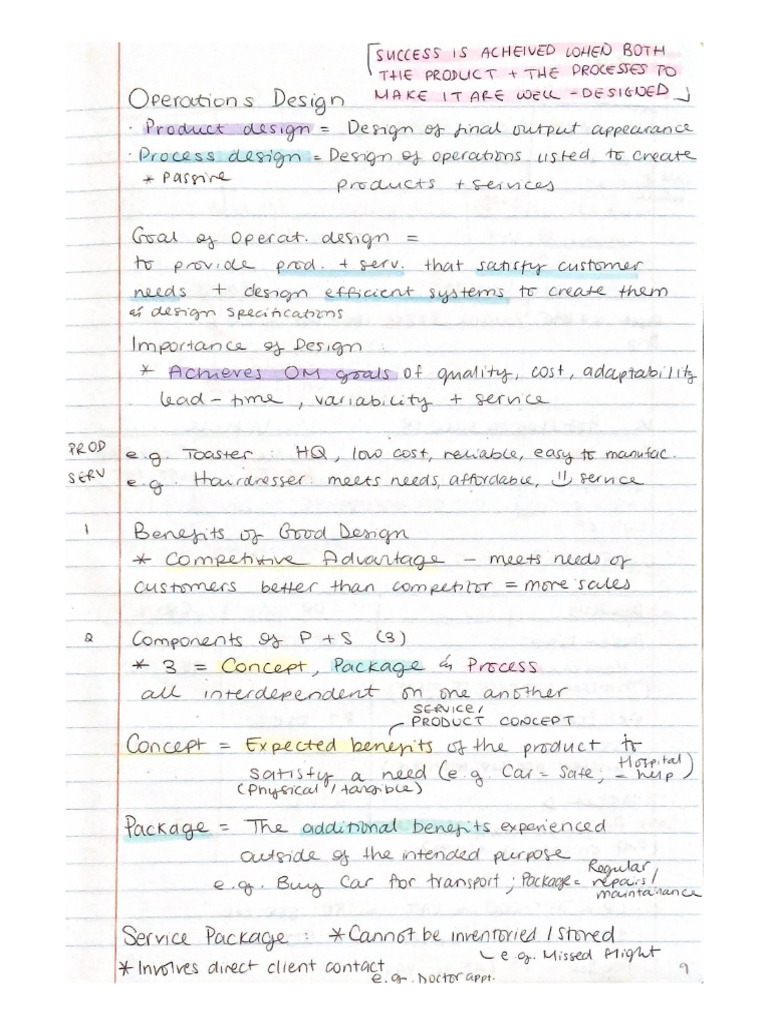 SUCCESS IS ACHEIVED WHEN BOTH
THE PRODUCT + THE PROCESSES TO
MAKE IT ARE WELL-DESIGNED
Operations Design
· Product design = Design of final output appearance
· Process design = Design of operations listed to create
* Passive products + services
Goal of Operat. design =
to provide prod. + serv. that satisfy customer
needs + design efficient systems to create them
& design specifications
Importance of Design :
* Achieves OM goals of quality, cost, adaptability
lead-time, variability + service
PROD e.g. Toaster : HQ, low cost, reliable, easy to manufac.
SERV e.g. Hairdresser: meets needs, affordable, :) service
1 Benefits of Good Design
* Competitive Advantage – meets needs of
customers better than competitor = more sales
2 Components of P + S (3)
* 3 = Concept, Package & Process
all interdependent on one another
SERVICE/
PRODUCT CONCEPT
Concept = Expected benefits of the product to
satisfy a need (e.g. Car = Safe; Hospital = help)
(Physical / tangible)
Package = The additional benefits experienced
outside of the intended purpose
e.g. Buy Car for transport; Package = Regular repairs/
maintainance
Service Package : * Cannot be inventoried / stored
e.g. Missed flight
* Involves direct client contact
e.g. Doctor appt.
9